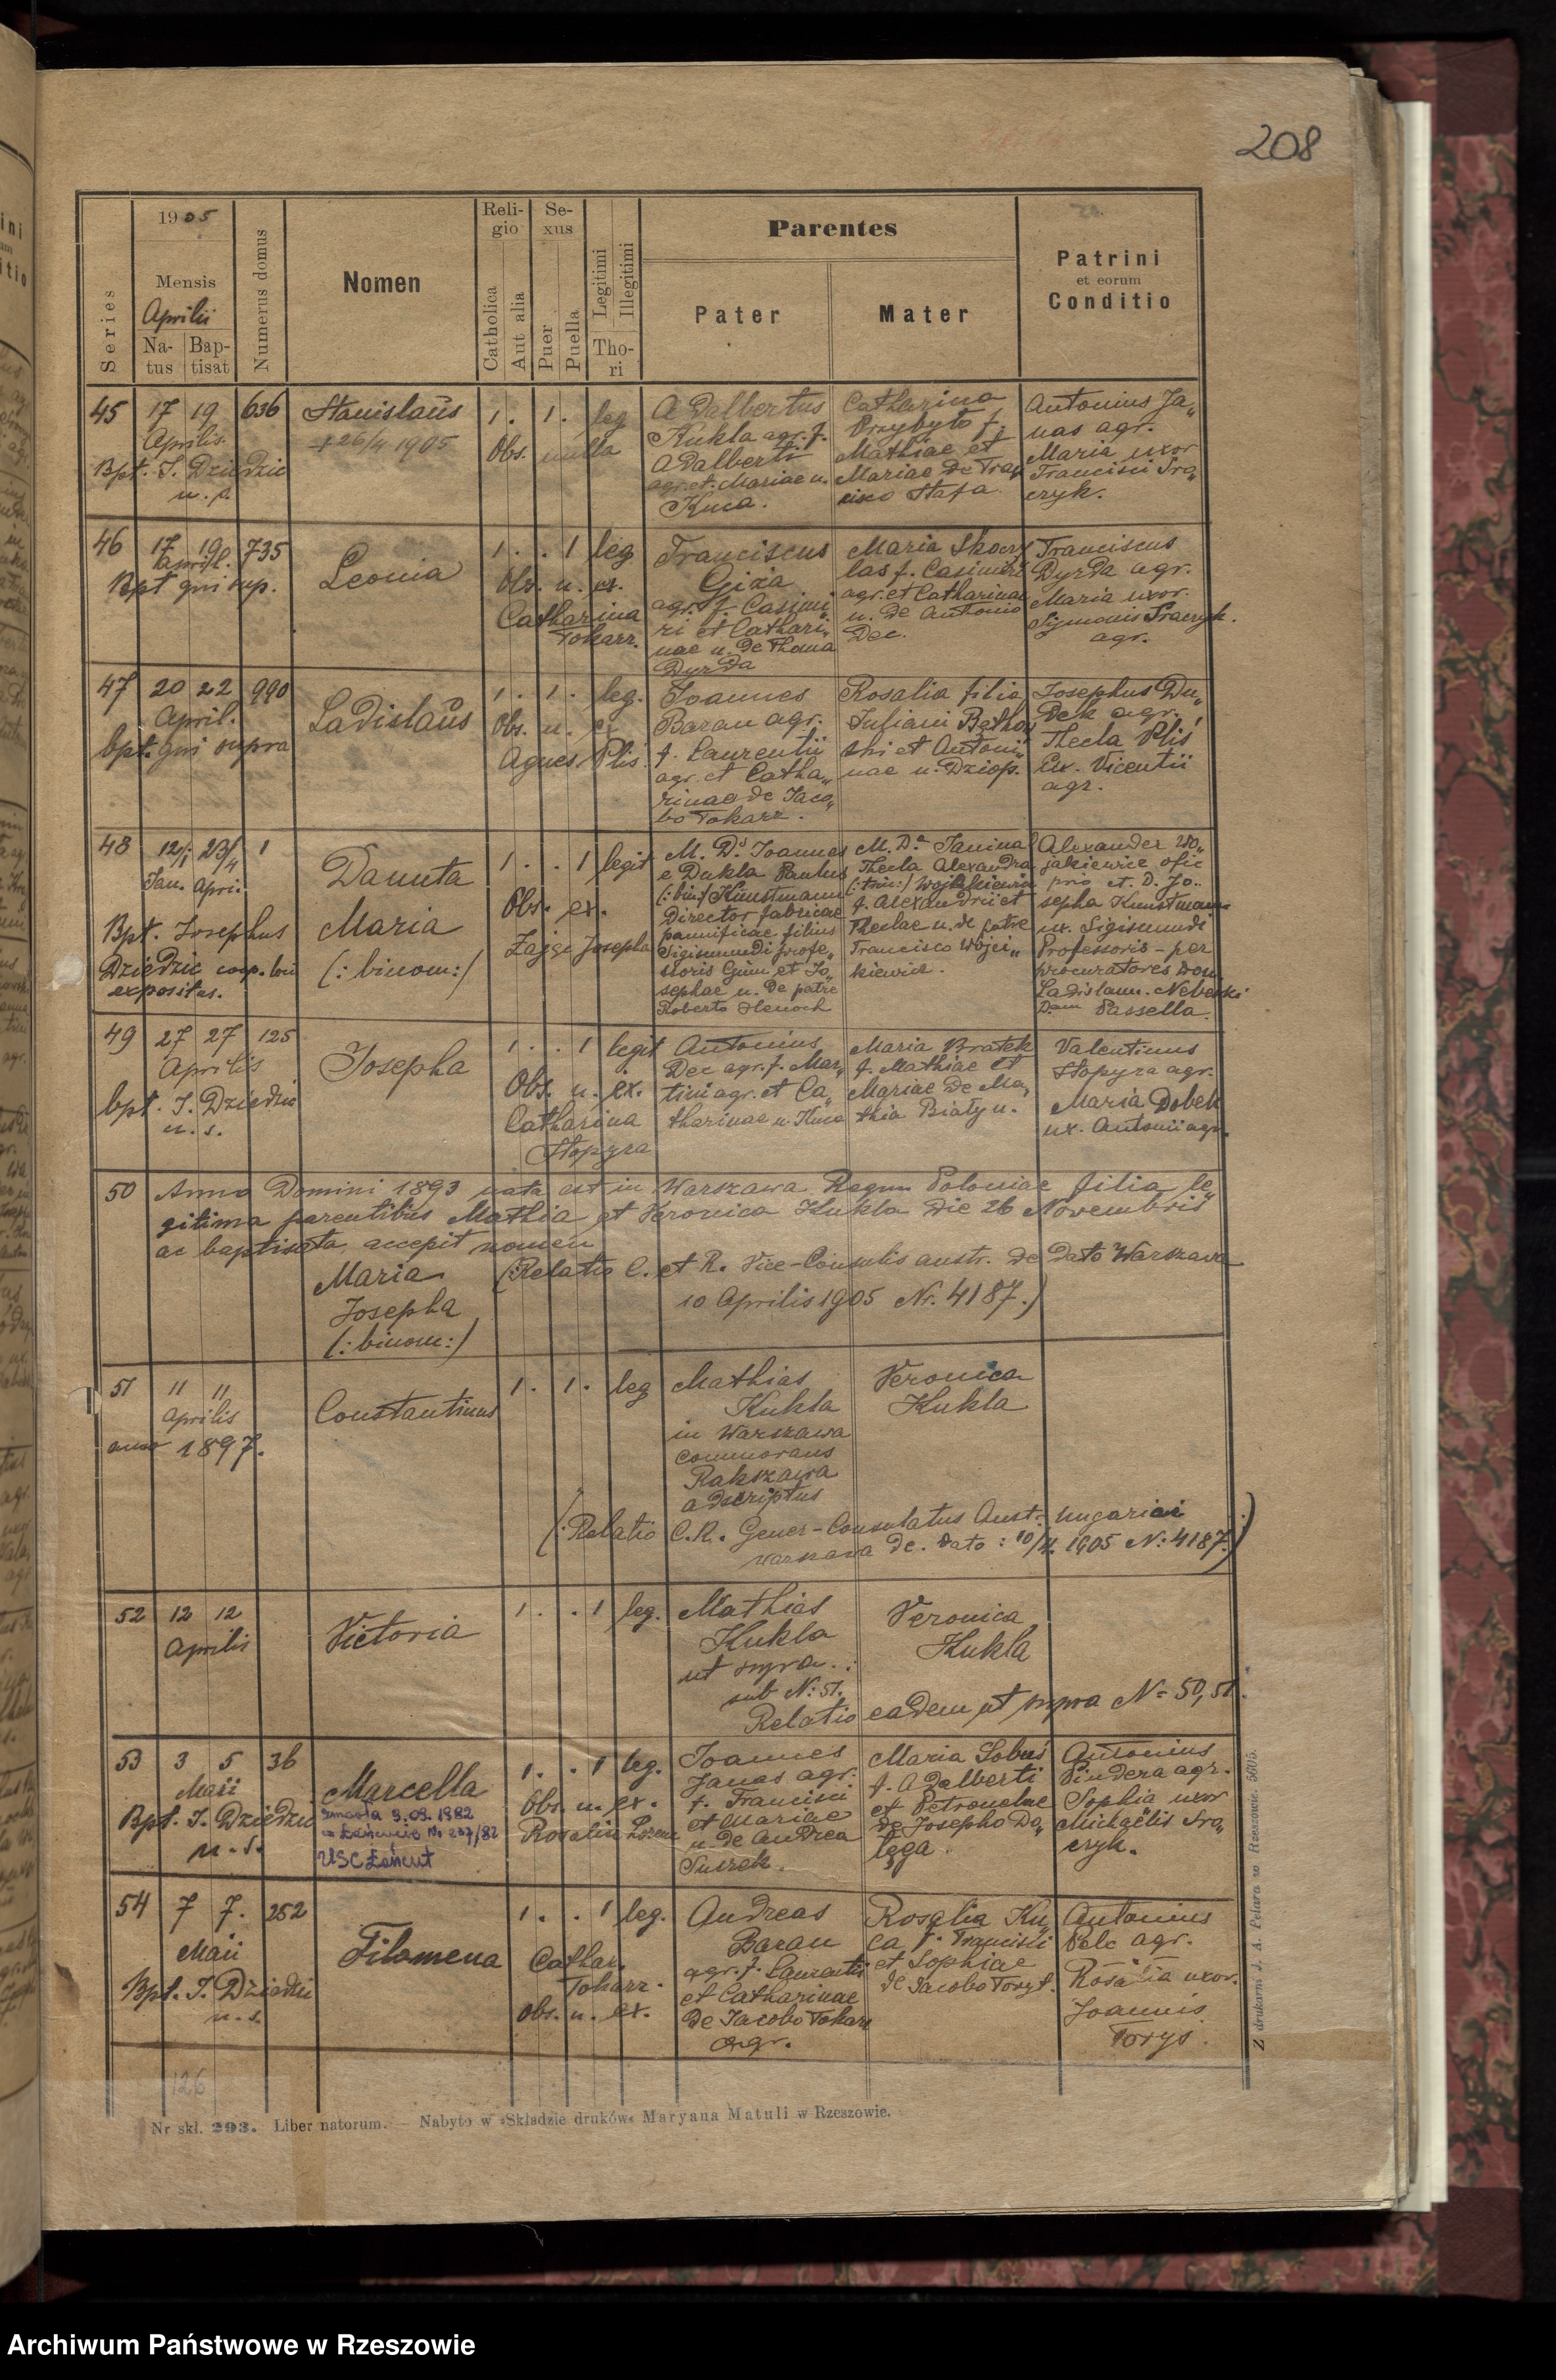 208
1905
Series
Mensis
Aprilii
Na-
tus
Bap-
tisat
Numerus domus
Nomen
Reli-
gio
Catholica
Aut alia
Se-
xus
Puer
Puella
Legitimi
Illegitimi
Tho-
ri
Parentes
Pater
Mater
Patrini
et eorum
Conditio
45 17 19 636
Aprilis.
Bpt. J. Dziedzic
Stanislaus
+ 26/4 1905
1. 1. leg
Obs. nulla
Adalbertus
Kukla agr. f.
Adalberti
agr. et. Mariae n.
Kuca.
Catharina
Przybyło f.
Mathiae et
Mariae de Fran„
cisco Stafa.
Antonius Ja„
nas agr.
Maria uxor
Francisci Tra„
czyk.
46 17 19 735
April.
Bpt qui sup.
Leonia
1. . 1 leg
Obs. n. ex.
Catharina
Tokarz.
Franciscus
Giża
agr. f. Casimi„
ri et Cathari„
nae n. de Thoma
Dyrda
Maria Skoczy
las f. Casimiri
agr. et Catharinae
n. de Antonio
Dec.
Franciscus
Dyrda agr.
Maria uxor.
Symonis Traczyk.
agr.
47 20 22 990
April.
bpt. qui supra
Ladislaus
1. 1. leg.
Obs. n. ex
Agnes Plis.
Joannes
Baran agr.
f. Laurentii
agr. et Catha„
rinae de Jaco„
bo Tokarz.
Rosalia filia
Juliani
et Antoni„
nae n. Dziop.
Josephus Du„
dek agr.
Thecla Plis
ux. Vicentii
agr.
48 12/1 23/4 1
Jan. April
Bpt. Josephus
Dziedzic coop. loci
expositus.
Danuta
Maria
(: binom:)
1. . 1 legit
Obs. ex.
Zając Josepha
M. D. Joannes
e Dukla Paulus
(: bin:) Kunstmann
Director fabricae
pannificae filius
Sigismundi profe„
ssoris Gimn. et Jo„
sephae n. de patre
Roberto Henoch
M. Da Janina
Thecla Alexandra
(: trin:) Wojciakiewicz
f. Alexandri et
Theclae n. de patre
Francisco Wojci„
kiewicz.
Alexander Wo„
jakiewicz ofic
et. D. Jo„
sepha Kunstmann
ux. Sigismundi
Professoris - per
procuratores Dom.
Ladislaum. Nebeski
Dam Passella.
49 27 27 125
Aprilis
bpt. J. Dziedzic
u. s.
Josepha
1. . 1 legit
Obs. n. ex.
Catharina
Stopyra
Antonius
Dec agr. f. Mar„
tini agr. et Ca„
tharinae n. Kuca
Maria Bratek
f. Mathiae et
Mariae de Ma„
thia Biały n.
Valentinus
Stopyra agr.
Maria Dobek
ux. Antonii agr.
50 Anno Domini 1893 nata est in Warszawa Regni Poloniae filia le„
gitima parentibus Mathia et Veronica Kukla die 26 Novembris
ac baptisata accepit nomen
Maria (Relatio C. et R. Vice-Consulis austr. de Dato Warszawa
Josepha 10 Aprilis 1905 Nr. 4187.)
(: binom:)
51 11 11
Aprilis
anno 1897.
Constantinus
1. 1. leg
Mathias
Kukla
in Warszawa
commorans
Rakszawa
adscriptus
Veronica
Kukla
(: Relatio C. R. Gener-Consulatus Aust: Ungariai
Warszawa de. Dato: 10/4. 1905 N: 4187.)
52 12 12
Aprilis
Victoria
1. . 1 leg.
Mathias
Kukla
ut supra.
sub N: 51.
Veronica
Kukla
Relatio eadem ut supra N= 50, 51.
53 3 5 36
Maii
Bpt. J. Dziedzic
u. s.
Marcella
zmarła 9.09.1982
w Łańcucie Nr 237/82
USC Łańcut
1. . 1 leg.
Obs. n. ex.
Rosalia
Joannes
Janas agr.
f. Francisci
et Mariae
n. de Andrea
Suszek.
Maria Sobuś
f. Adalberti
et Petronelae
de Josepho Do„
łęga.
Antonius
Pindera agr.
Sophia uxor
Michaëlis Tra„
czyk.
54 7 7. 252
Maii
Bpt. J. Dziedzic
u. s.
Filomena
1. . 1 leg.
Cathar.
Tokarz.
Obs. n. ex.
Andreas
Baran
agr. f. Laurentii
et Catharinae
de Jacobo Tokarz
agr.
Rosalia Ku„
ca f. Francisci
et Sophiae
de Jacobo Toryś.
Antonius
Pelc agr.
Rosalia uxor.
Joannis
Torys.
126
Nr skł. 293. Liber natorum. — Nabyto w »Składzie druków« Maryana Matuli w Rzeszowie.
Z drukarni J. A. Pelara w Rzeszowie. 5605.
Archiwum Państwowe w Rzeszowie